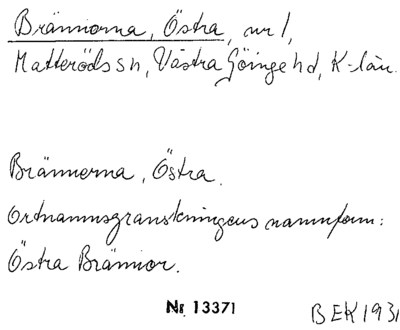 Brännorna, Östra, nr 1,
Matteröds sn, Västra Göinge hd, K-län.
Brännorna, Östra.
Ortnamnsgranskningens namnform:
Östra Brännor.
Nr 13371 BEK 1931